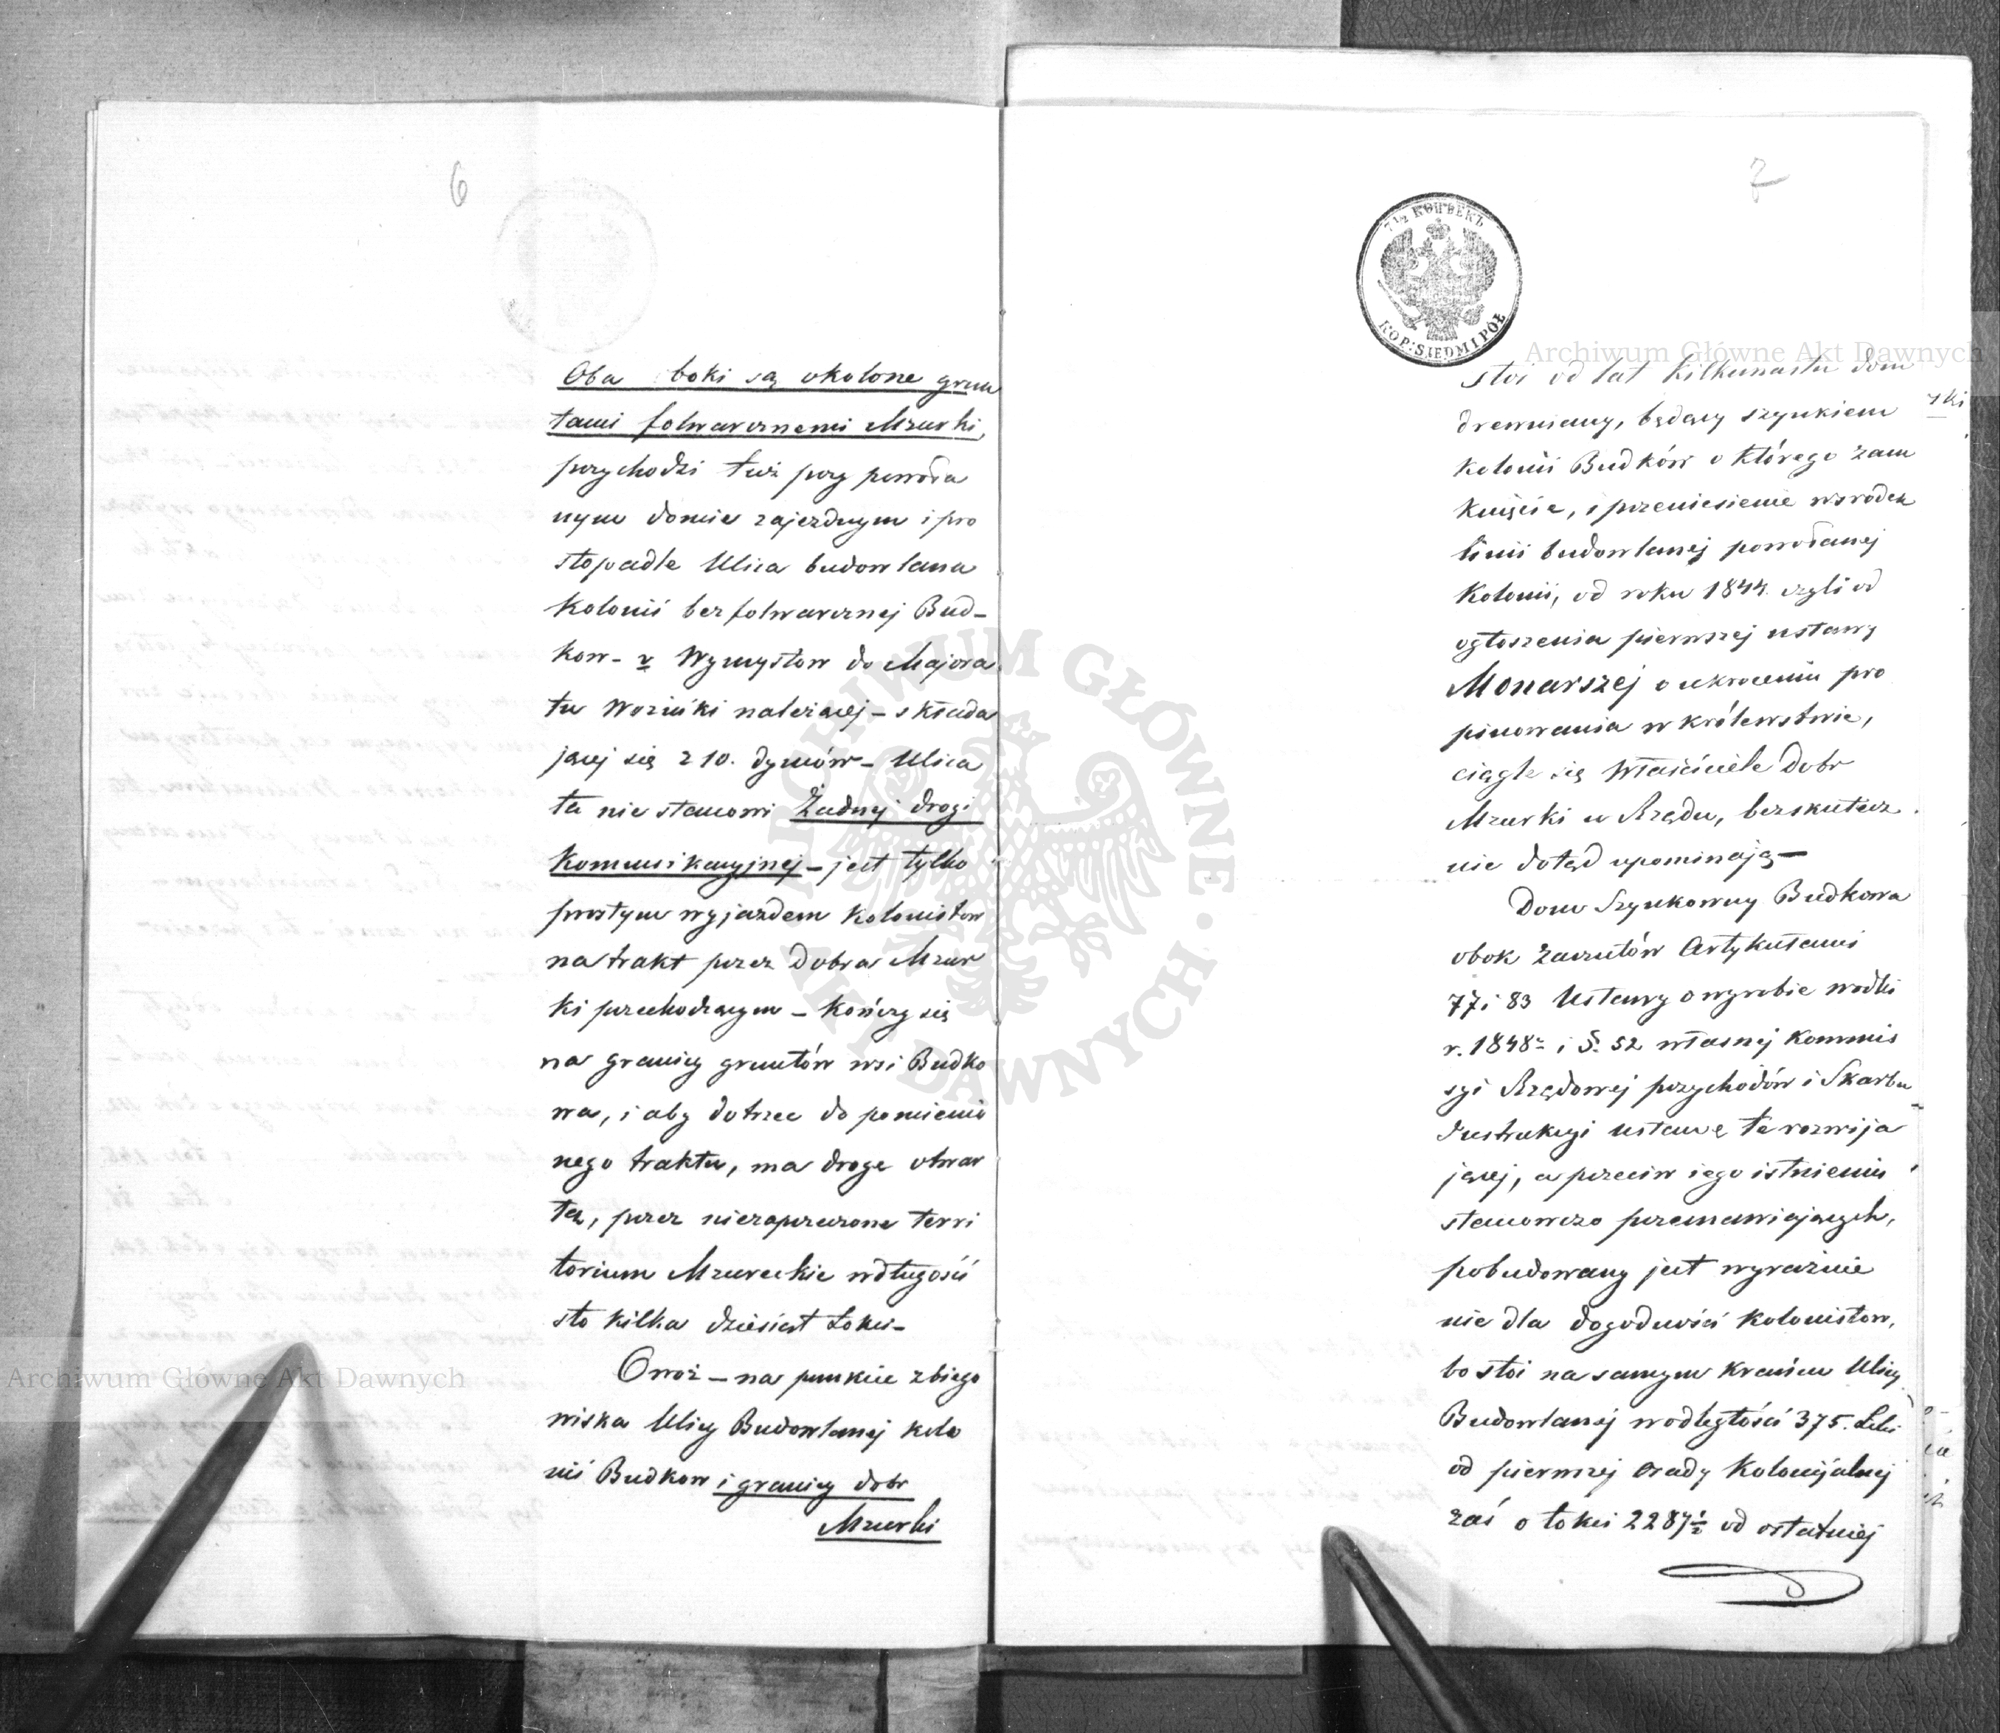 6
Oba boki są okolone grun
tami folwarcznemi Mzurki,
przychodzi tuż przy powoła
nym domie zajezdnym i pro
stopadle Ulica budowlana
Kolonii bezfolwarcznej Bud-
kow - v Wymysłow do Majora
tu Wozniki należącej - składa
jącej się z 10. dymów - Ulica
ta nie stanowi Żadnej drogi
Komunikacyjnej - jest tylko
prostym wyjazdem kolonistow
na trakt przez Dobra Mzur
ki przechodzącym - Kończy się
na granicy gruntów wsi Budko
wa, i aby dotrzec do pomienio
nego traktu, ma drogę otwar
tą, przez niezaprzeczone terri
torium Mzureckie w długości
sto kilka dziesiąt Łokci -
Owoż - na punkcie zbiego
wiska Ulicy Budowlanej kolo
nii Budkow i granicy dobr
Mzurki
7
7 1/2 КОПѢЕКЪ
KOP: SIEDM I PÓŁ
stoi od lat kilkunastu dom
drewniany, będący szynkiem
kolonii Budków o którego zam
knięcie, i przeniesienie wsrodek
linii budowlanej powołanej
Kolonii, od roku 1844 czyli od
ogłoszenia pierwszej ustawy
Monarszej o ukroceniu pro
pinowania w królewstwie,
ciągle się Właściciele Dobr
Mzurki u Rządu, bezskutecz
nie dotąd upominają -
Dom Szynkowny Budkowa
obok zarzutów Artykułami
77 i 83 Ustawy o wyrobie wodki
r. 1848 i §. 52 własnej Kommis
syi Rządowej przychodów i Skarbu
Instrukcyi ustawę tę rozwija
jącej, a przeciw jego istnieniu
stanowczo przemawiających,
pobudowany jest wyraźnie
nie dla dogodności Kolonistow,
bo stoi na samym Krańcu Ulicy
Budowlanej w odległości 375. Łokci
od pierwszej osady Kolonijalnej
zaś o łokci 2287 1/2 od ostatniej
Archiwum Główne Akt Dawnych
Archiwum Główne Akt Dawnych
ARCHIWUM GŁÓWNE AKT DAWNYCH